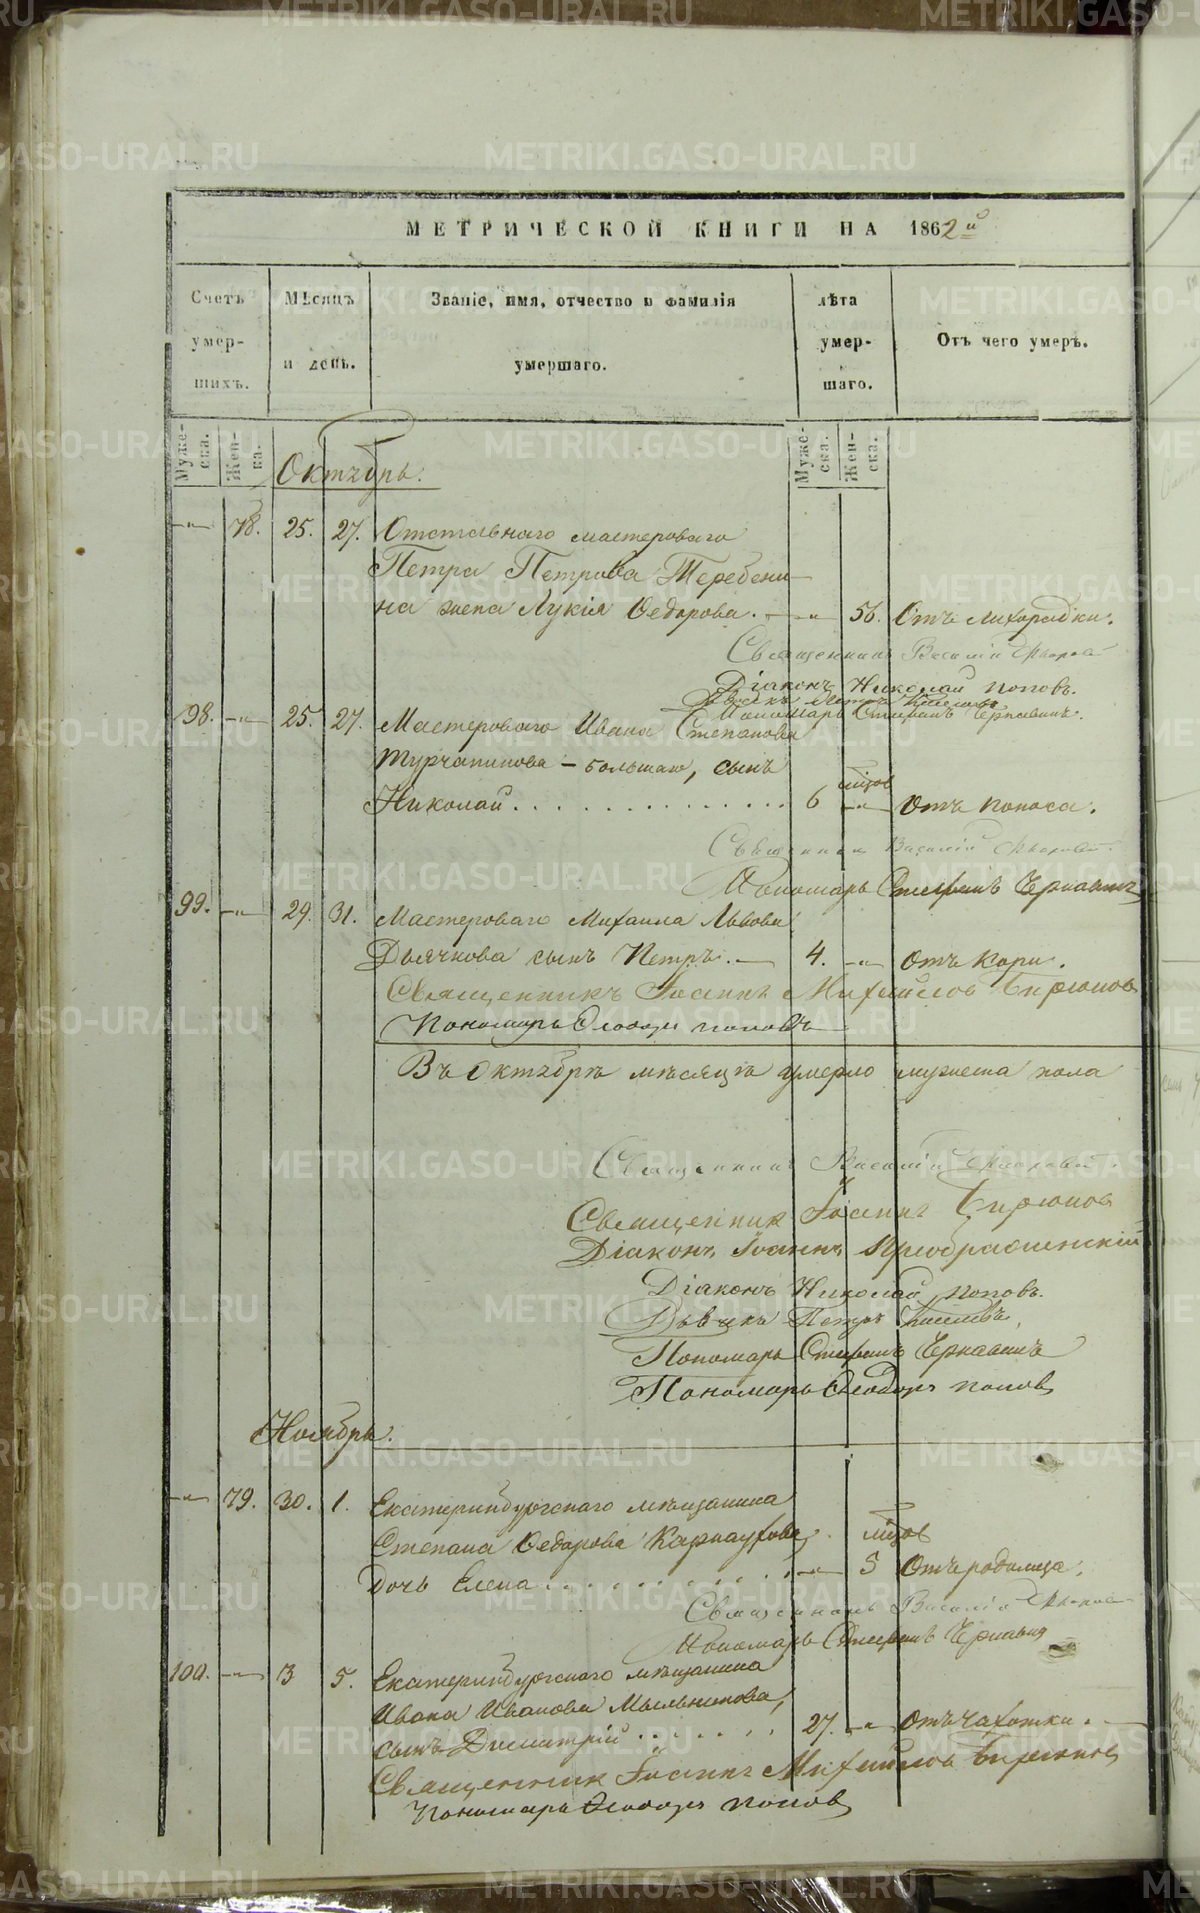 МЕТРИЧЕСКОЙ КНИГИ НА 1862й
Счетъ умерших.
Мѣсяцъ и день.
Званіе, имя, отчество и фамилія умершаго.
лѣта умершаго.
Отъ чего умеръ.
Муже-ска.
Жен-ка.
Муже-ска.
Жен-ска.
Октябрь.
—"— 78. 25. 27. Отставнаго мастероваго
Петра Петрова Теребени
на жена Лукія Ѳедорова. —"— 56. Отъ лихорадки.
Священникъ Василій
Діаконъ Николай Поповъ.
Пономарь Стефанъ Чернавинъ.
98. —"— 25. 27. Мастероваго Ивана Степанова
Турчанинова – большаго, сынъ
мцов
Николай . . . . . . . . . . . . . . 6 —"— Отъ поноса.
Священникъ Василій
Пономарь Стефанъ Чернавинъ
99. —"— 29. 31. Мастероваго Михаила Львова
Дьячкова сынъ Петръ. — 4. —"— Отъ кори.
Священникъ Іоаннъ Михайлов Бирюков
Пономарь Ѳеодоръ Поповъ
Въ Октябрѣ мѣсяцѣ умерло мужеска пола
Священникъ Василій
Священник Іоаннъ Бирюков
Діаконъ Іоаннъ Преображенскій
Діаконъ Николай Поповъ.
Дьячекъ Петръ
Пономарь Стефанъ Чернавинъ
Пономарь Ѳеодоръ Попов
Ноябрь.
—"— 79. 30. 1. Екатеринбургскаго мѣщанина
Степана Ѳедорова Карнаухова
мцов
Дочь Елена . . . . . . . . . . . —"— 5 Отъ родимца.
Священникъ Василій
Пономарь Стефанъ Чернавин
100. —"— 3 5. Екатеринбургскаго мѣщанина
Ивана Иванова Мыльникова,
сынъ Димитрій . . . . . . . 27. —"— Отъ чахотки.
Священник Іоаннъ Михайлов Бирюков
Пономарь Ѳеодоръ Попов
METRIKI.GASO-URAL.RU